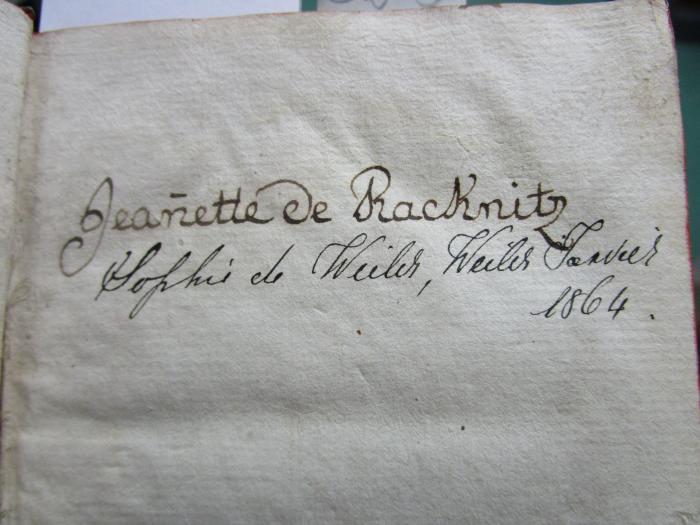 Jeañette de Racknitz
Sophie de Weiler, Weiler Janvier
1864.